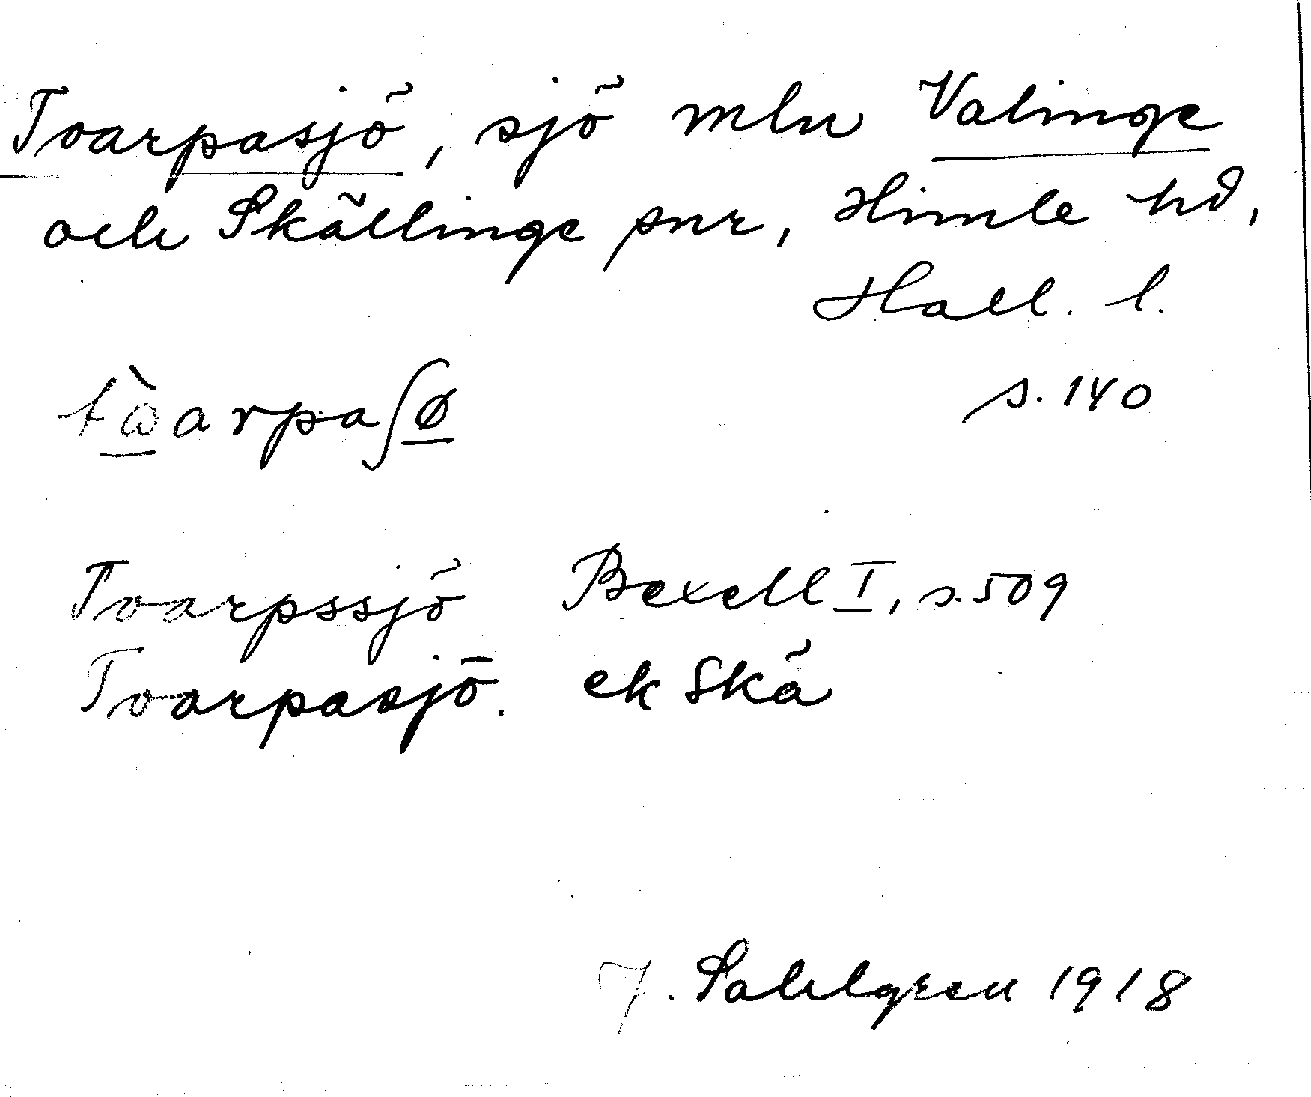 Tvarpasjö, sjö mln Valinge
och Skällinge snr, Himle hd,
Hall. l.
s. 140
tὼarpaʃø
Tvarpssjö Bexell I, s. 509
Tvarpasjö. ek Skä
J. Sahlgren 1918